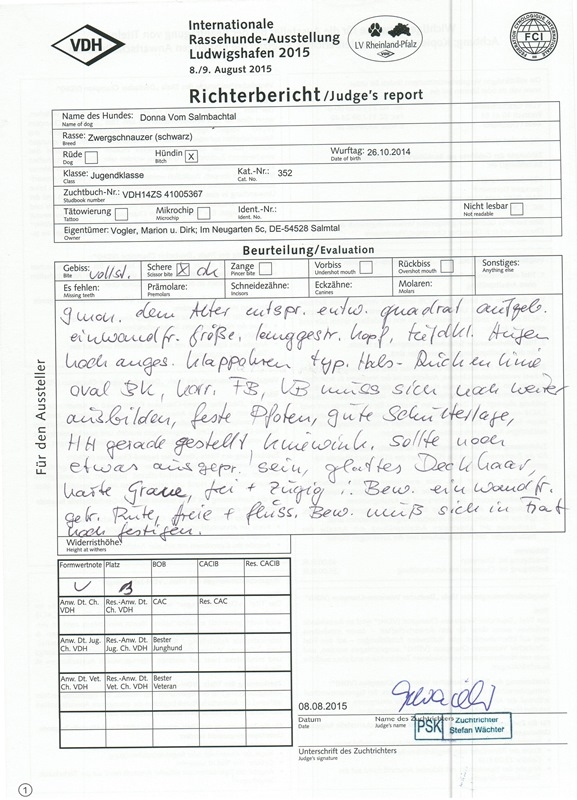 VDH
Internationale
Rassehunde-Ausstellung
Ludwigshafen 2015
8./9. August 2015
LV Rheinland-Pfalz
VDH
FEDERATION CYNOLOGIQUE INTERNATIONALE
FCI
Richterbericht/Judge's report
Name des Hundes: Donna Vom Salmbachtal
Name of dog
Rasse: Zwergschnauzer (schwarz)
Breed
Rüde Hündin X Wurftag: 26.10.2014
Dog Bitch Date of birth
Klasse: Jugendklasse Kat.-Nr.: 352
Class Cat. No.
Zuchtbuch-Nr.: VDH14ZS 41005367
Studbook number
Tätowierung Mikrochip Ident.-Nr.: Nicht lesbar
Tattoo Microchip Ident. No. Not readable
Eigentümer: Vogler, Marion u. Dirk; Im Neugarten 5c, DE-54528 Salmtal
Owner
Beurteilung/Evaluation
Gebiss: vollst. Schere X ok Zange Vorbiss Rückbiss Sonstiges:
Bite Scissor bite Pincer bite Undershot mouth Overshot mouth Anything else
Es fehlen: Prämolare: Schneidezähne: Eckzähne: Molaren:
Missing teeth Premolars Incisors Canines Molars
Für den Aussteller
9 mon. dem Alter entspr. entw. quadrat aufgeb.
einwandfr. Größe, langgestr. Kopf, tiefdkl. Augen
hoch anges. Klappohren typ. Hals- Rückenlinie
oval BK, korr. FB, VB muss sich noch weiter
ausbilden, feste Pfoten, gute Schulterlage,
HH gerade gestellt, Kniewink. sollte noch
etwas ausgepr. sein, glattes Deckhaar,
harte Granne, frei + zügig i. Bew. einwandfr.
getr. Rute, freie + flüss. Bew. muß sich in Front
noch festigen.
Widerristhöhe:
Height at withers
Formwertnote Platz BOB CACIB Res. CACIB
V 3
Anw. Dt. Ch. VDH Res.-Anw. Dt. Ch. VDH CAC Res. CAC
Anw. Dt. Jug. Ch. VDH Res.-Anw. Dt. Jug. Ch. VDH Bester Junghund
Anw. Dt. Vet. Ch. VDH Res.-Anw. Dt. Vet. Ch. VDH Bester Veteran
08.08.2015
Datum Name des Zuchtrichters
Date Judge's name
PSK Zuchtrichter
Stefan Wächter
Unterschrift des Zuchtrichters
Judge's signature
1